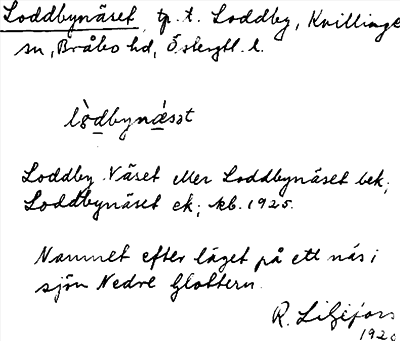 Loddbynäset, tp. t. Loddby, Kvillinge
sn, Bråbo hd, Östergtl. l.
Loddby Näset eller Loddbynäset bek;
Loddbynäset ek; kb. 1925.
Namnet efter läget på ett näs i
sjön Nedre Glottern.
R. Liljefors